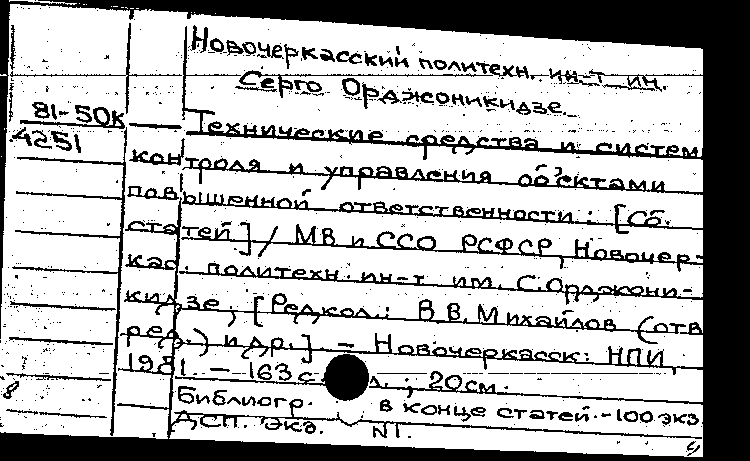 Новочеркасский политехн. ин-т им.
Серго Орджоникидзе
81-50к
4251
Технические средства и систем
контроля и управления объектами
повышенной ответственности : [Сб.
статей] / МВ и ССО РСФСР, Новочер-
кас. политехн. ин-т им. С. Орджони-
кидзе ; [Редкол.: В.В. Михайлов (отв
ред.) и др.] - Новочеркасск : НПИ,
1981. - 163 с. ; 20 см.
Библиогр. в конце статей. - 100 экз.
ДСП. Экз. N1.
8